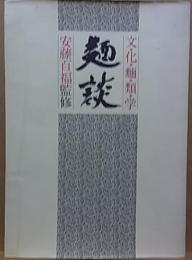 文化麺類学
麺談
安藤百福監修